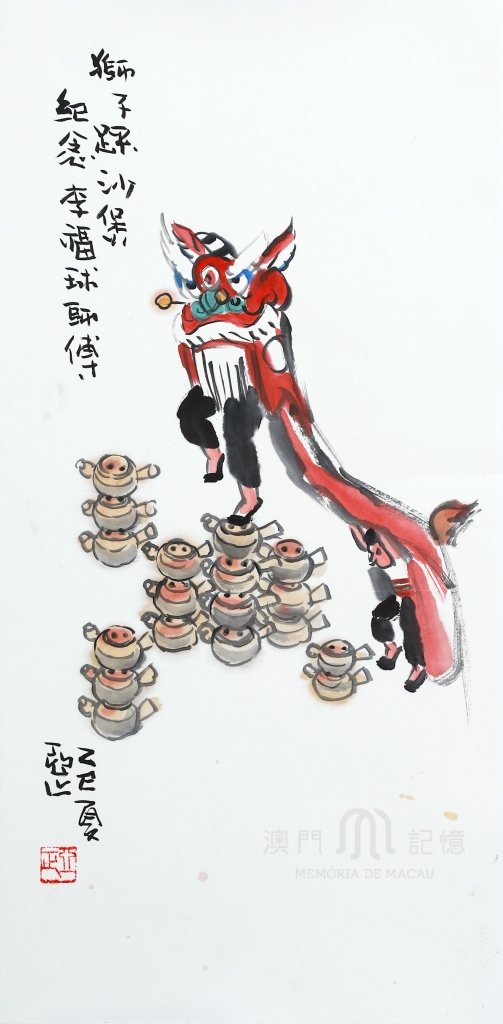 獅子踩沙煲
紀念李福球師傅
乙巳夏
澳門記憶
MEMÓRIA DE MACAU